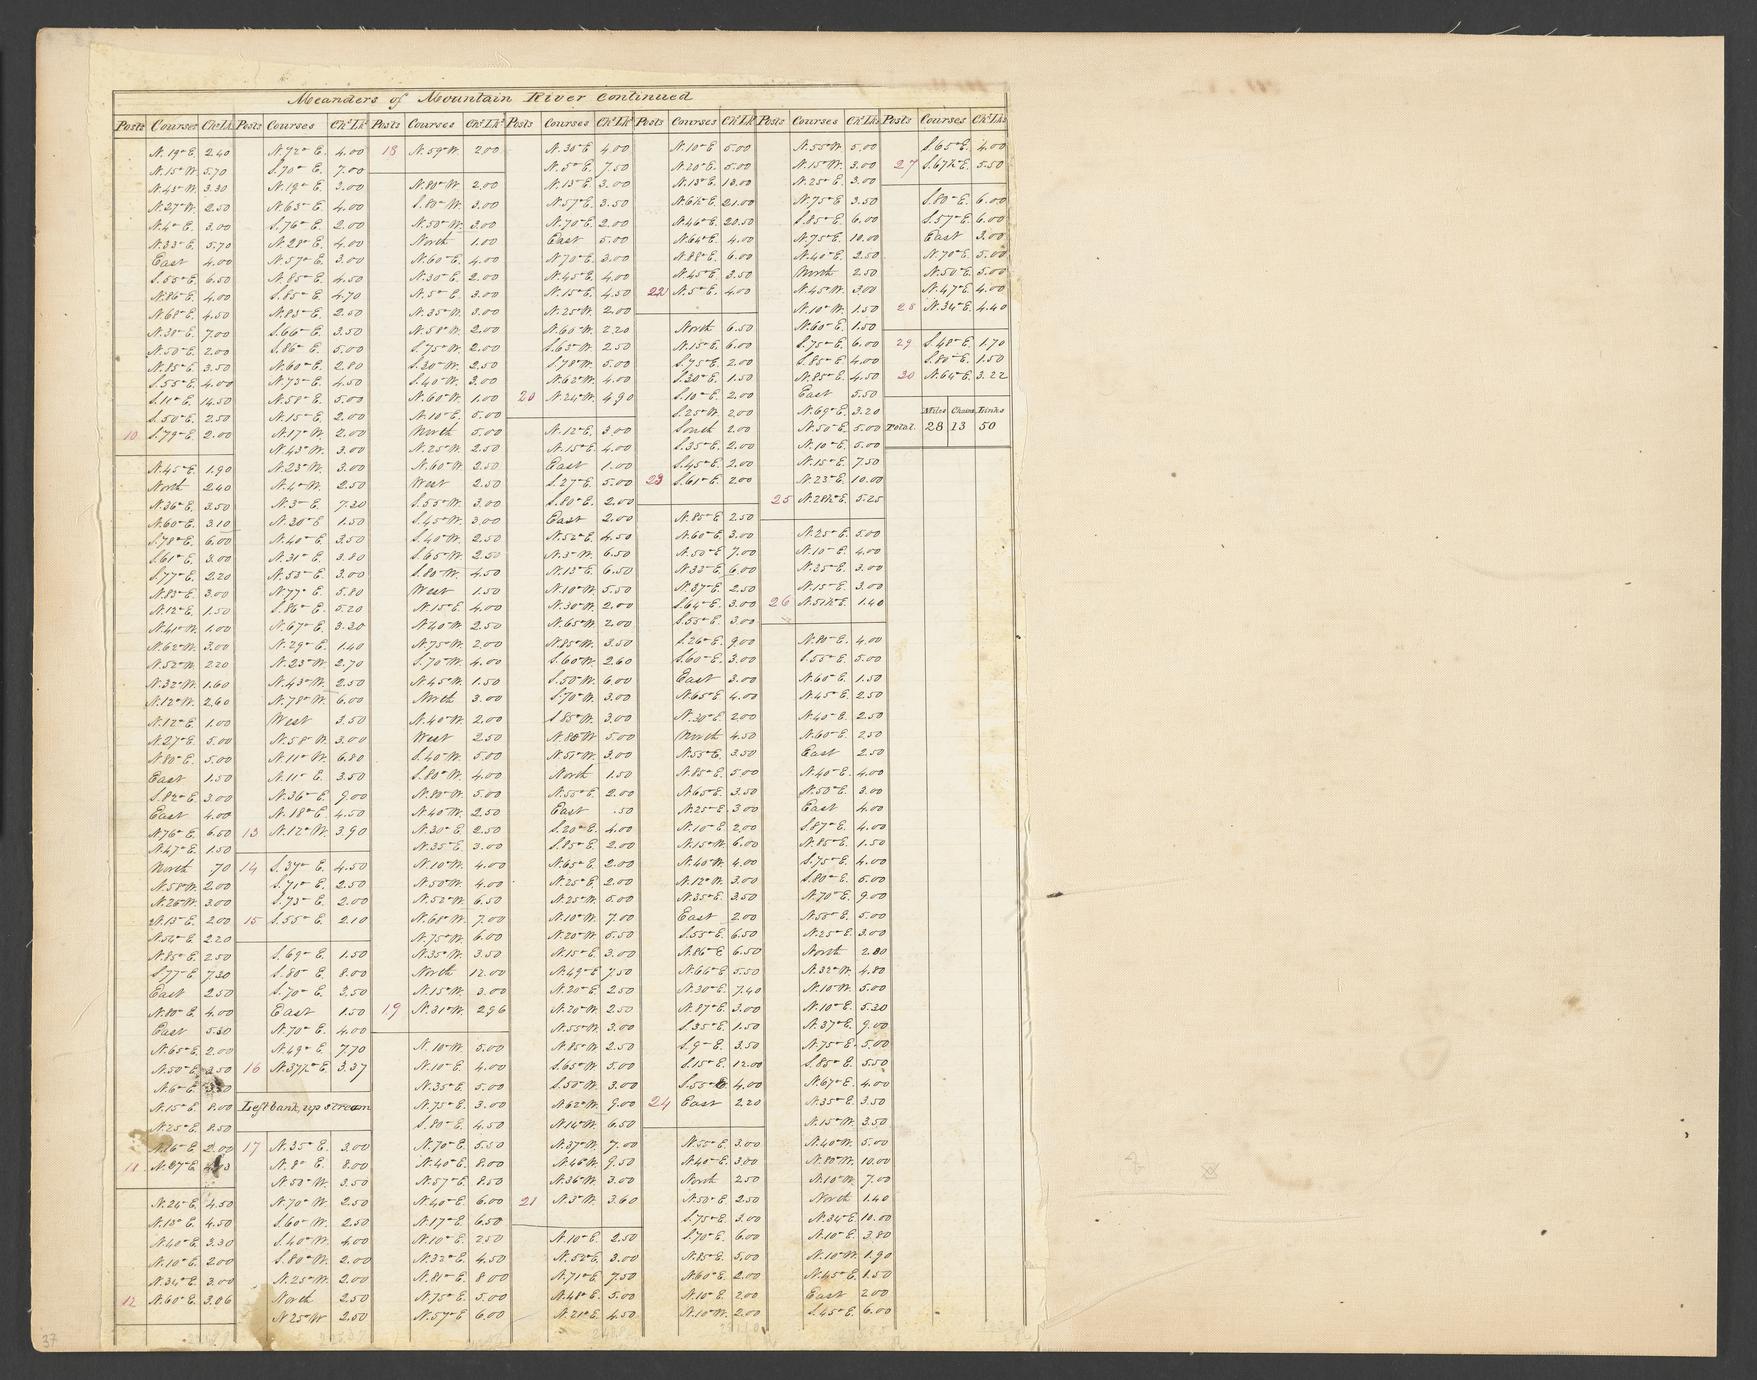 Meanders of Mountain River Continued
Posts Courses Chs Lks
N. 19° E. 2.40
N. 15° W. 5.70
N. 43° W. 3.30
N. 27° W. 2.50
N. 4° E. 3.00
N. 33° E. 5.70
East 4.00
S. 55° E. 6.50
N. 86° E. 4.00
N. 68° E. 4.50
N. 38° E. 7.00
N. 50° E. 2.00
N. 85° E. 3.50
S. 55° E. 4.00
S. 11° E. 14.50
S. 50° E. 2.50
10 S. 79° E. 2.00
N. 45° E. 1.90
North 2.40
N. 36° E. 3.50
N. 60° E. 3.10
S. 78° E. 6.00
S. 61° E. 3.00
S. 77° E. 2.20
N. 83° E. 3.00
N. 12° E. 1.50
N. 41° W. 1.00
N. 62° W. 3.00
N. 52° W. 2.20
N. 32° W. 1.60
N. 12° W. 2.60
N. 12° E. 1.00
N. 27° E. 5.00
N. 80° E. 5.00
East 1.50
S. 82° E. 3.00
East 4.00
N. 76° E. 6.50
N. 47° E. 1.50
North .70
N. 58° W. 2.00
N. 26° W. 3.00
N. 13° E. 2.00
N. 54° E. 2.20
N. 85° E. 2.50
S. 77° E. 7.30
East 2.50
N. 80° E. 4.00
East 5.30
N. 65° E. 2.00
N. 50° E. 2.50
N. 6° E.
N. 15° E. 8.00
N. 25° E. 8.50
N. 16° E. 2.00
11 N. 87° E.
N. 24° E. 4.50
N. 13° E. 4.50
N. 40° E. 3.30
N. 10° E. 2.00
N. 34° E. 3.00
12 N. 60° E. 3.06
Posts Courses Chs Lks
N. 72° E. 4.00
S. 70° E. 7.00
N. 19° E. 3.00
N. 63° E. 4.00
S. 76° E. 2.00
N. 28° E. 4.00
N. 57° E. 3.00
N. 85° E. 4.50
S. 85° E. 4.70
N. 83° E. 2.50
S. 66° E. 3.50
S. 86° E. 5.00
N. 60° E. 2.80
N. 73° E. 4.50
N. 58° E. 5.00
N. 15° E. 2.00
N. 17° W. 2.00
N. 43° W. 3.00
N. 23° W. 3.00
N. 4° W. 2.50
N. 3° E. 7.30
N. 30° E. 1.50
N. 40° E. 3.50
N. 31° E. 3.80
N. 53° E. 3.00
N. 77° E. 5.80
S. 86° E. 5.20
N. 67° E. 3.30
N. 29° E. 1.40
N. 23° W. 2.70
N. 43° W. 2.50
N. 78° W. 6.00
West 3.50
N. 58° W. 3.00
N. 11° W. 6.80
N. 11° E. 3.50
N. 36° E. 9.00
N. 18° E. 4.50
13 N. 12° W. 3.90
14 S. 37° E. 4.50
S. 71° E. 2.50
S. 73° E. 2.00
15 S. 55° E. 2.10
S. 69° E. 1.50
S. 80° E. 8.00
S. 70° E. 3.50
East 1.50
N. 70° E. 4.00
N. 49° E. 7.70
16 N. 37½° E. 3.37
Left bank, up stream
17 N. 35° E. 3.00
N. 8° E. 8.00
N. 50° W. 3.50
N. 70° W. 2.50
S. 60° W. 2.50
S. 40° W. 4.00
S. 80° W. 2.00
N. 25° W. 2.00
North 2.50
N. 25° W. 2.50
Posts Courses Chs Lks
18 N. 59° W. 2.00
N. 80° W. 2.00
S. 80° W. 3.00
N. 50° W. 3.00
North 1.00
N. 60° E. 4.00
N. 30° E. 2.00
N. 5° E. 3.00
N. 35° W. 3.00
N. 58° W. 2.00
S. 75° W. 2.00
S. 30° W. 2.50
S. 40° W. 3.00
N. 60° W. 1.00
N. 10° E. 5.00
North 5.00
N. 25° W. 2.50
N. 60° W. 2.50
West 2.50
S. 55° W. 3.00
S. 45° W. 3.00
S. 40° W. 2.50
S. 65° W. 2.50
S. 80° W. 4.50
West 1.50
N. 15° E. 4.00
N. 40° W. 2.50
N. 75° W. 2.00
S. 70° W. 4.00
N. 45° W. 1.50
North 3.00
N. 40° W. 2.00
West 2.50
S. 40° W. 5.00
S. 80° W. 4.00
N. 80° W. 5.00
N. 40° W. 2.50
N. 30° E. 2.50
N. 35° E. 3.00
N. 10° W. 4.00
N. 50° W. 4.00
N. 52° W. 6.50
N. 68° W. 7.00
N. 75° W. 6.00
N. 35° W. 3.50
North 12.00
N. 15° W. 3.00
19 N. 31° W. 2.96
N. 10° W. 5.00
N. 10° E. 4.00
N. 35° E. 5.00
N. 75° E. 3.00
S. 80° E. 4.50
N. 70° E. 5.50
N. 40° E. 8.00
N. 57° E. 8.50
N. 40° E. 6.00
N. 17° E. 6.50
N. 10° E. 2.50
N. 32° E. 4.50
N. 81° E. 8.00
N. 75° E. 5.00
N. 57° E. 6.00
Posts Courses Chs Lks
N. 30° E. 4.00
N. 5° E. 7.50
N. 13° E. 3.00
N. 57° E. 3.50
N. 70° E. 2.00
East 5.00
N. 70° E. 3.00
N. 45° E. 4.00
N. 15° E. 4.50
N. 25° W. 2.00
N. 60° W. 2.20
S. 63° W. 2.50
S. 78° W. 5.00
N. 62° W. 4.00
20 N. 24° W. 4.90
N. 12° E. 3.00
N. 15° E. 4.00
East 1.00
S. 27° E. 5.00
S. 80° E. 2.00
East 2.00
N. 52° E. 4.50
N. 3° W. 6.50
N. 13° E. 6.50
N. 10° W. 5.50
N. 30° W. 2.00
N. 65° W. 2.00
N. 85° W. 3.50
S. 60° W. 2.60
S. 50° W. 6.00
S. 70° W. 3.00
S. 85° W. 3.00
N. 86° W. 5.00
N. 51° W. 3.00
North 1.50
N. 55° E. 2.00
East .50
S. 20° E. 4.00
S. 85° E. 2.00
N. 65° E. 2.00
N. 25° E. 2.00
N. 25° W. 5.00
N. 10° W. 7.00
N. 20° W. 5.50
N. 15° E. 3.00
N. 49° E. 7.50
N. 20° E. 2.50
N. 20° W. 2.50
N. 55° W. 3.00
N. 85° W. 2.50
S. 65° W. 5.00
S. 50° W. 3.00
N. 62° W. 9.00
N. 14° W. 6.50
N. 37° W. 7.00
N. 46° W. 9.50
N. 36° W. 3.00
21 N. 3° W. 3.60
N. 10° E. 2.50
N. 52° E. 3.00
N. 71° E. 7.50
N. 48° E. 5.00
N. 21° E. 4.50
Posts Courses Chs Lks
N. 10° E. 5.00
N. 20° E. 5.00
N. 13° E. 13.00
N. 6½° E. 21.00
N. 46° E. 20.50
N. 64° E. 4.00
N. 88° E. 6.00
N. 45° E. 3.50
22 N. 5° E. 4.00
North 6.50
N. 15° E. 6.00
S. 75° E. 2.00
S. 30° E. 1.50
S. 10° E. 2.00
S. 25° W. 2.00
South 2.00
S. 35° E. 2.00
S. 45° E. 2.00
23 S. 61° E. 2.00
N. 85° E. 2.50
N. 60° E. 3.00
N. 50° E. 7.00
N. 33° E. 6.00
N. 37° E. 2.50
S. 64° E. 3.00
S. 55° E. 3.00
S. 26° E. 9.00
S. 60° E. 3.00
East 3.00
N. 65° E. 4.00
N. 30° E. 2.00
North 4.50
N. 55° E. 3.50
N. 85° E. 5.00
N. 65° E. 3.50
N. 25° E. 3.00
N. 10° E. 2.00
N. 15° W. 6.00
N. 40° W. 4.00
N. 12° W. 3.00
N. 35° E. 3.50
East 2.00
S. 55° E. 6.50
N. 86° E. 6.50
N. 66° E. 5.50
N. 30° E. 7.40
N. 87° E. 3.00
S. 35° E. 1.50
S. 9° E. 3.50
S. 15° E. 12.00
S. 55° E. 4.00
24 East 2.20
N. 55° E. 3.00
N. 40° E. 3.00
North 2.50
N. 50° E. 2.50
S. 75° E. 3.00
S. 70° E. 6.00
N. 85° E. 5.00
N. 60° E. 2.00
N. 10° E. 2.00
N. 10° W. 2.00
Posts Courses Chs Lks
N. 55° W. 5.00
N. 15° W. 3.00
N. 25° E. 3.00
N. 75° E. 3.50
S. 85° E. 6.00
N. 75° E. 10.00
N. 40° E. 2.50
North 2.50
N. 45° W. 3.00
N. 10° W. 1.50
N. 60° E. 1.50
S. 75° E. 6.00
S. 85° E. 4.00
N. 85° E. 4.50
East 5.50
N. 69° E. 3.20
N. 50° E. 5.00
N. 10° E. 5.00
N. 15° E. 7.50
N. 23° E. 10.00
25 N. 28½° E. 5.25
N. 25° E. 5.00
N. 10° E. 4.00
N. 35° E. 3.00
N. 15° E. 3.00
26 N. 51½° E. 1.40
N. 80° E. 4.00
S. 55° E. 5.00
N. 60° E. 1.50
N. 45° E. 2.50
N. 40° E. 2.50
N. 60° E. 2.50
East 2.50
N. 40° E. 4.00
N. 50° E. 3.00
East 4.00
S. 87° E. 4.00
N. 85° E. 1.50
S. 75° E. 4.00
S. 80° E. 5.00
N. 70° E. 9.00
N. 50° E. 5.00
N. 25° E. 3.00
North 2.80
N. 32° W. 4.80
N. 10° W. 5.00
N. 10° E. 5.30
N. 37° E. 9.00
N. 75° E. 5.00
S. 85° E. 5.50
N. 67° E. 4.00
N. 35° E. 3.50
N. 15° W. 3.50
N. 40° W. 5.00
N. 80° W. 10.00
N. 10° W. 7.00
North 1.40
N. 34° E. 10.00
N. 10° E. 3.80
N. 10° W. 1.90
N. 45° E. 1.50
East 2.00
S. 45° E. 6.00
Posts Courses Chs Lks
S. 65° E. 4.00
27 S. 67½° E. 5.50
S. 80° E. 6.00
S. 57° E. 6.00
East 3.00
N. 70° E. 5.00
N. 50° E. 5.00
N. 47° E. 4.00
28 N. 34° E. 4.40
29 S. 48° E. 1.70
S. 80° E. 1.50
30 N. 64° E. 3.22
Miles Chains Links
Total. 28 13 50
37